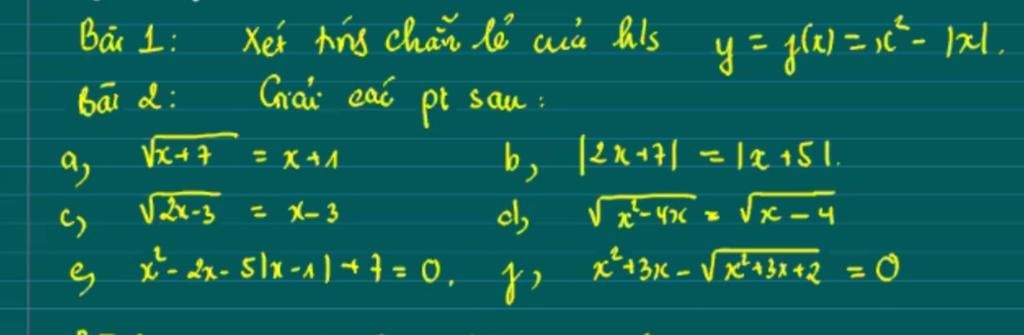 Bài 1: Xét tính chẵn lẻ của h/s y = f(x) = x² - |x|.
Bài 2: Giải các pt sau:
a, √(x+7) = x+1 b, |2x+7| = |x+5|.
c, √(2x-3) = x-3 d, √(x²-4x) = √(x-4)
e, x² - 2x - 5|x-1| + 7 = 0. f, x²+3x - √(x²+3x+2) = 0